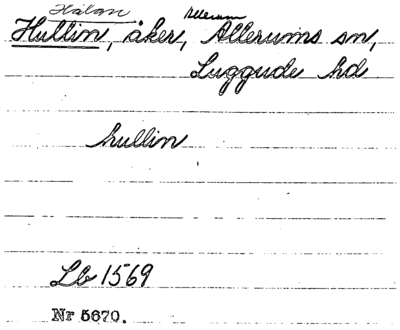 Hålan Allerum
Hullin, åker, Allerums sn,
Luggude hd
hullin
Lb 1569
Nr 5670.